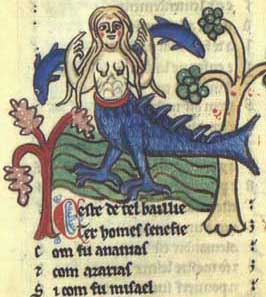 Ceste de tel baillie
tex homes senefie
C om fu ananias
E com azarias
S i com fu misael